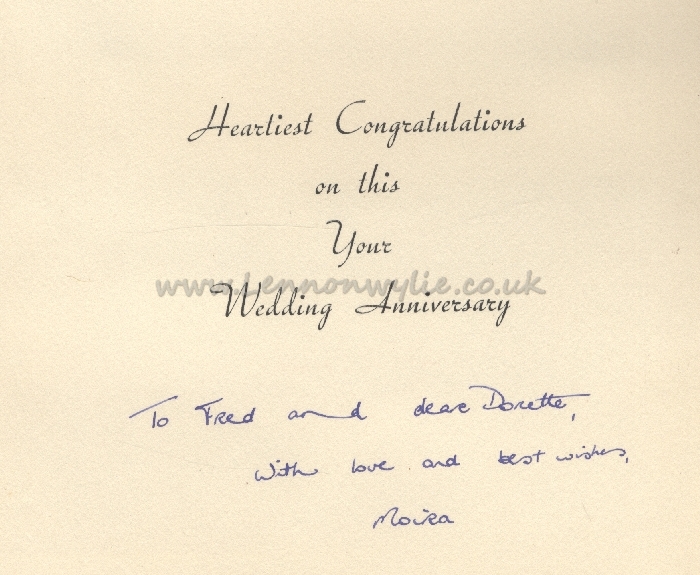 Heartiest Congratulations
on this
Your
www.Lennonwylie.co.uk
Wedding Anniversary
To Fred and dear Dorette,
With love and best wishes,
Moira